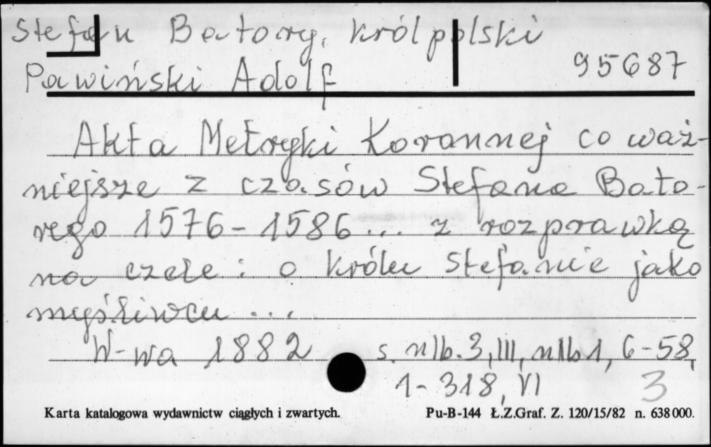 Stefan Batory, król polski
Pawiński Adolf 95687
Akta Metryki Koronnej co waż-
niejsze z czasów Stefana Bato-
rego 1576-1586... z rozprawką
na czele: o królu Stefanie jako
myśliwcu ...
W-wa 1882 s. nlb. 3, III, nlb 1, 6-58,
1-318, VI 3
Karta katalogowa wydawnictw ciągłych i zwartych. Pu-B-144 Ł.Z.Graf. Z. 120/15/82 n. 638000.